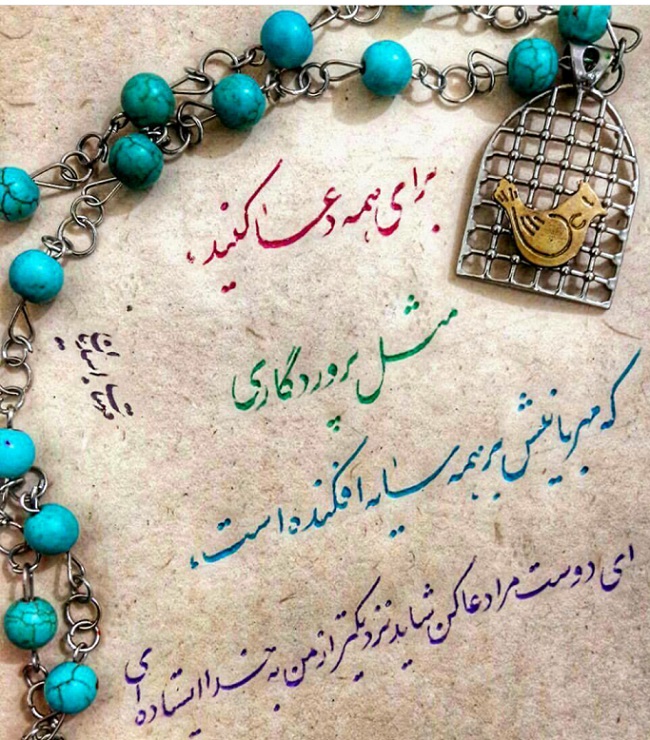 برای همه دعا کنید،
مثل پروردگاری
که مهربانیش بر همه سایه افکنده است،
ای دوست مرا دعا کن شاید نزدیکتر از من به خدا ایستاده ای